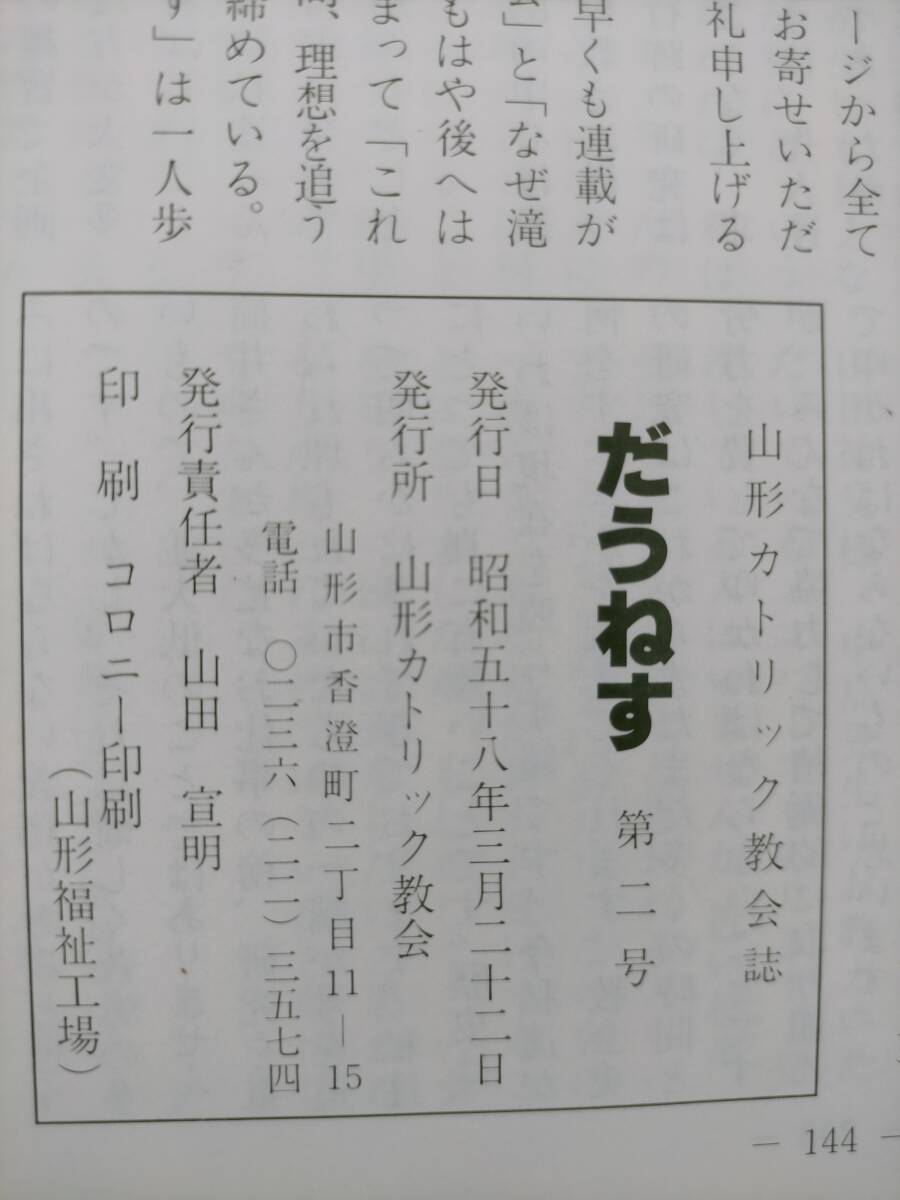 ージから全て
お寄せいただ
礼申し上げる
早くも連載が
」と「なぜ滝
もはや後へは
まって「これ
、理想を追う
締めている。
す」は一人歩
山形カトリック教会誌
だうねす 第二号
発行日 昭和五十八年三月二十二日
発行所 山形カトリック教会
山形市香澄町二丁目11―15
電話 〇二三六(二二)三五七四
発行責任者 山田 宣明
印刷 コロニー印刷
(山形福祉工場)
― 144 ―